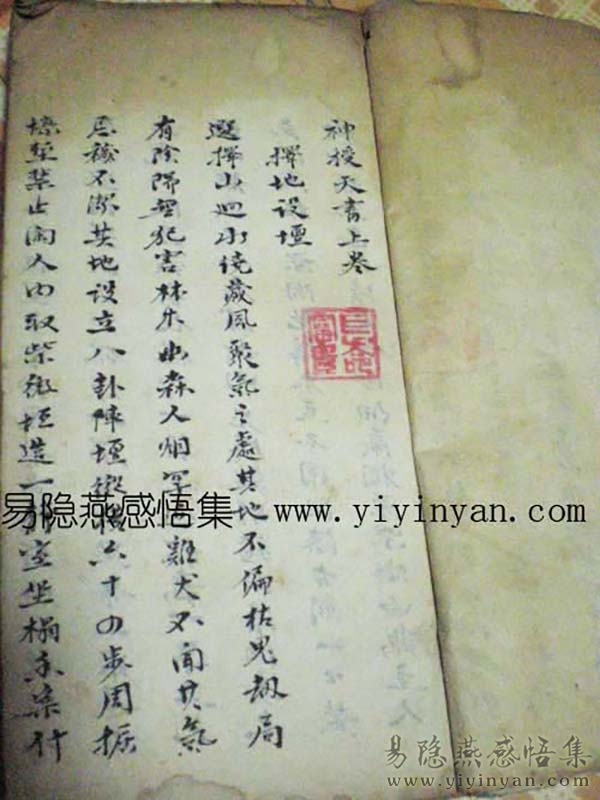 神授天書上卷
擇地设壇
選擇山迴水繞藏風聚氣之處其地不偏枯鬼劫局
有陰陽無犯害林木幽森人烟罕 雞犬不聞其氣
居穢不潔其地设立八卦陣壇 六十四步周振
禁止闲人内取紫微垣造一 室坐榻香案什
易隐燕感悟集 - www.yiyinyan.com
易隐燕感悟集
www.yiyinyan.com